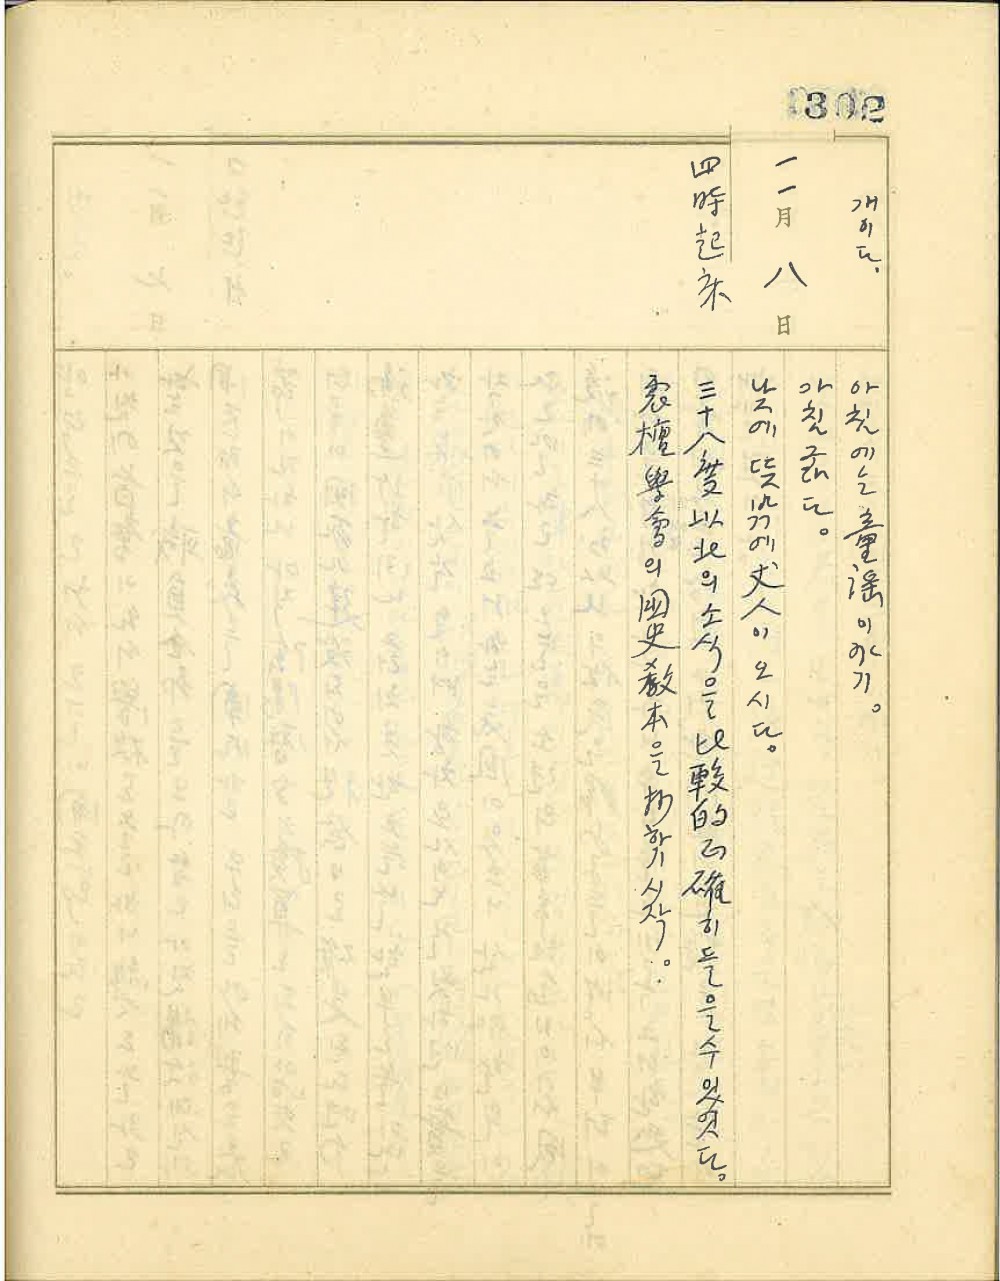 302
개이다。
一一月 八 日
四時起床
아침에는 童謠 이야기。
아침 굶다。
낮에 뜻밖에 丈人이 오시다。
三十八度以北의 소식을 比較的 正確히 들을 수 있엇다。
震檀學會의 國史敎本을 抄하기 시작。